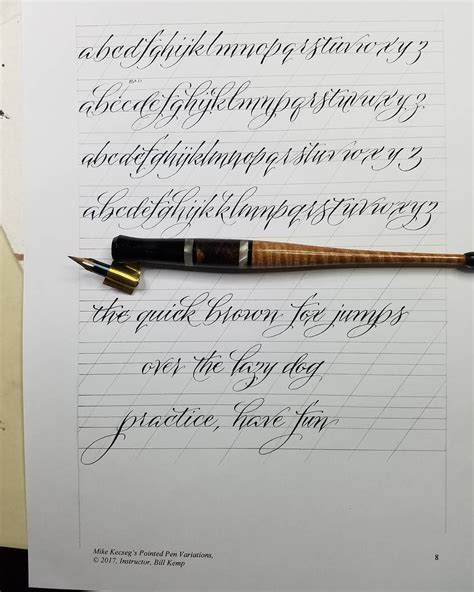 abcdefghijklmnopqrstuvwxyz
abcdefghijklmnopqrstuvwxyz
abcdefghijklmnopqrstuvwxyz
abcdefghijklmnopqrstuvwxyz
the quick brown fox jumps
over the lazy dog
practice, have fun
Mike Kecseg's Pointed Pen Variations,
© 2017, Instructor, Bill Kemp
8